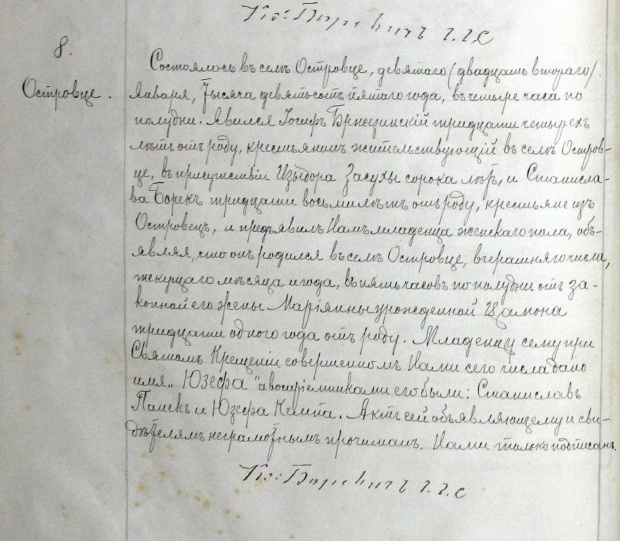 Кс: Боревичъ
8.
Островце.
Состоялось въ селѣ Островце, девятаго / двадцать втораго /
Января, Тысяча девятьсотъ пятаго года, въ четыре часа по
полудни. Явился Іосифъ Бржезинскій тридцати четырехъ
лѣтъ отъ роду, крестьянинъ жительствующій въ селѣ Остров-
це, въ присутствіи Изыдора Засухы сорока лѣтъ, и Станисла-
ва Борекъ тридцати восьми лѣтъ отъ роду, крестьяне изъ
Островецъ, и предъявилъ Намъ младенца женскаго пола, объ-
являя, что онъ родился въ селѣ Островце, вчерашняго числа,
текущаго мѣсяца и года, въ пять часовъ по полудни отъ за-
конной его жены Маріянны урожденной Цамона
тридцати одного года отъ роду. Младенцу сему при
Святомъ Крещеніи совершенномъ Нами сего числа дано
имя „Юзефа" а воспріемниками его были: Станиславъ
и Юзефа Кемпа. Актъ сей объявляющему и сви-
дѣтелямъ неграмотнымъ прочитанъ. Нами только подписанъ.
Кс: Боревичъ